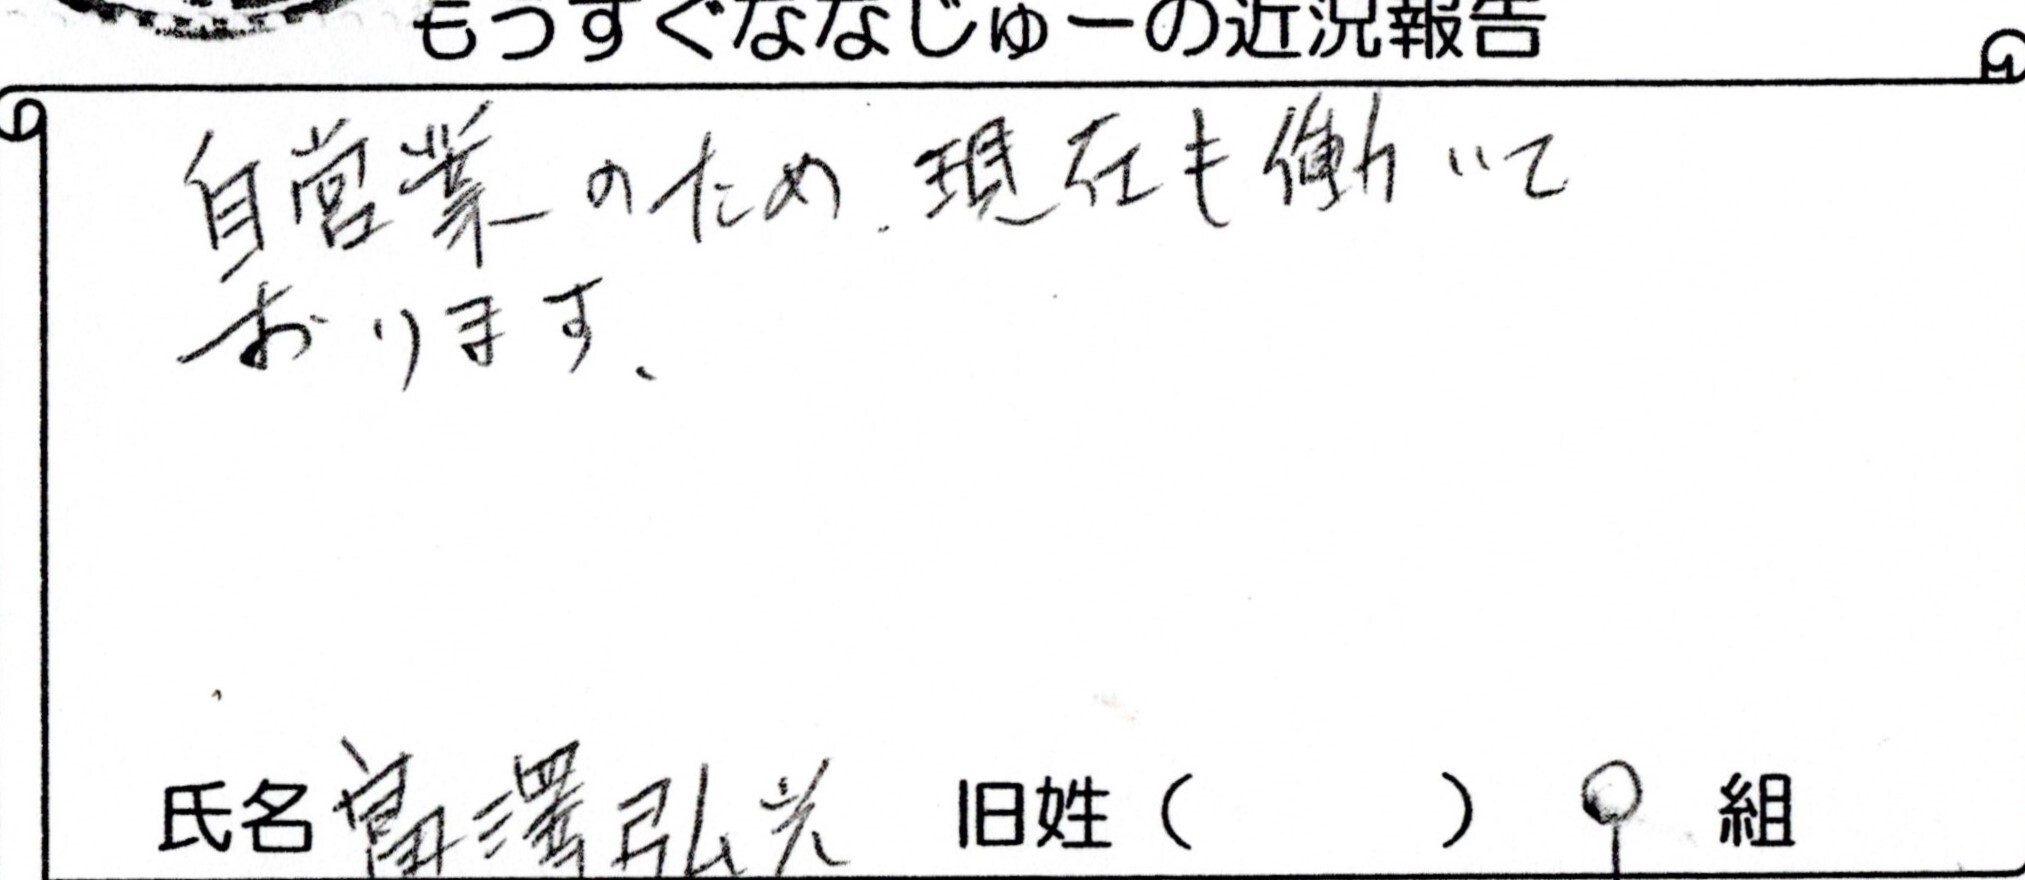 もうすぐななじゅーの近況報告
自営業のため、現在も働いて
おります、
氏名 富澤弘光 旧姓( ) 9 組